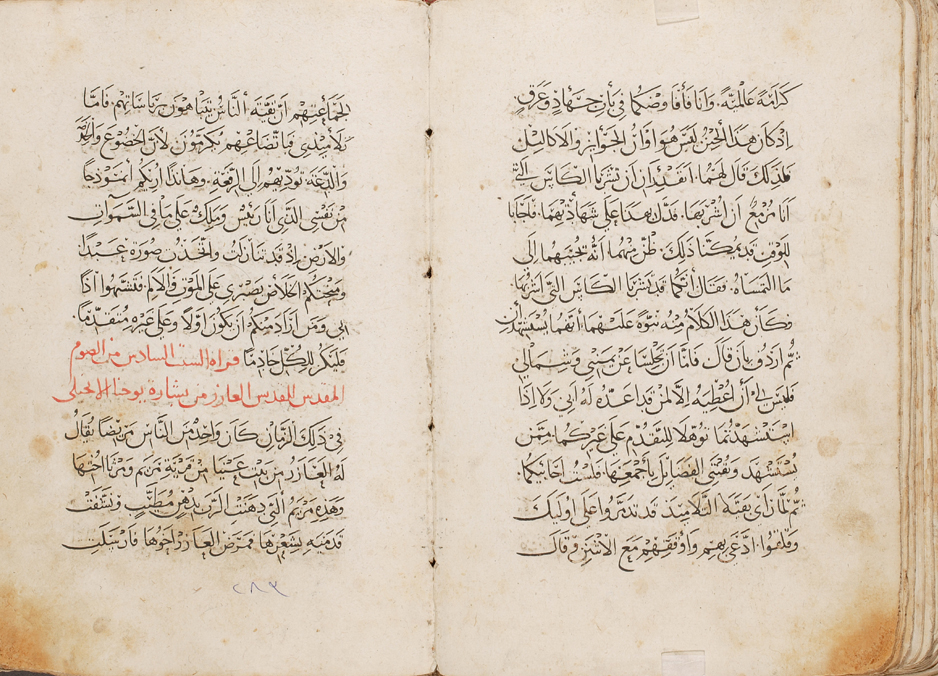 كرامة عالمية. وانا فأفاوضكما في بأن جهاد وعرق
اذ كان هذا الحين ليس هو اوان الجوايز والاكاليل
فلذلك قال لهما. اتقدران ان تشربا الكاس التي
انا مزمع ان اشربها. فدل بهذا على شهادتهما. فاجابا
للوقت قد يمكننا ذلك. ظن منهما انه يجيبهما الى
ما التمساه. فقال أنكما قد تشربا الكاس التي اشربها
وكان هذا الكلام منه نبوه عليهما أنهما يستشهدان
ثم اردف بان قال فاما ان تجلسا عن يميني وشمالي
فليس لي أن أعطيه الا لمن قد اعده له ابي ولا اذا
استشهدتما توهلا للتقدم على غيركما ممن
يستشهد ويقتني الفضايل بأجمعها فلست احابيكما.
ثم لما رأى بقية التلاميذ قد تذمروا على اوليك
وقلقوا. ادعى بهم واوقفهم مع الاثنين وقال
لجماعتهم ان بقية ألناس يتباهون برياساتهم. فاما
تلاميذي فباتضاعهم يكرمون لأن الخضوع
والدعة تودّيهم الى الرفعة. وهانذا اريكم أنموذجا
من نفسي الذي انا رئيس وملك على ما في السموات
والارض اذ قد تنازلت واتخذت صورة عبدا
ومنحتكم الخلاص بصبري على الموت والالام. فتشبهوا اذاً
بي ومن اراد منكم ان يكون اولاً وعلى غيره متقدماً.
فليكن للكل خادماً قراة السبت السادس من الصوم
المقدس للقديس العازر من بشارة يوحنا الانجيلي
في ذلك الزمان كان واحد من الناس مريضا يقال
له العازر من بيت عنيا من قرية مريم ومرثا اختها
وهذه مريم التي دهنت الرب بدهن مطيب ونشفت
قدميه بشعرها فمرض العازر اخوها فارسلت
٢٨٣